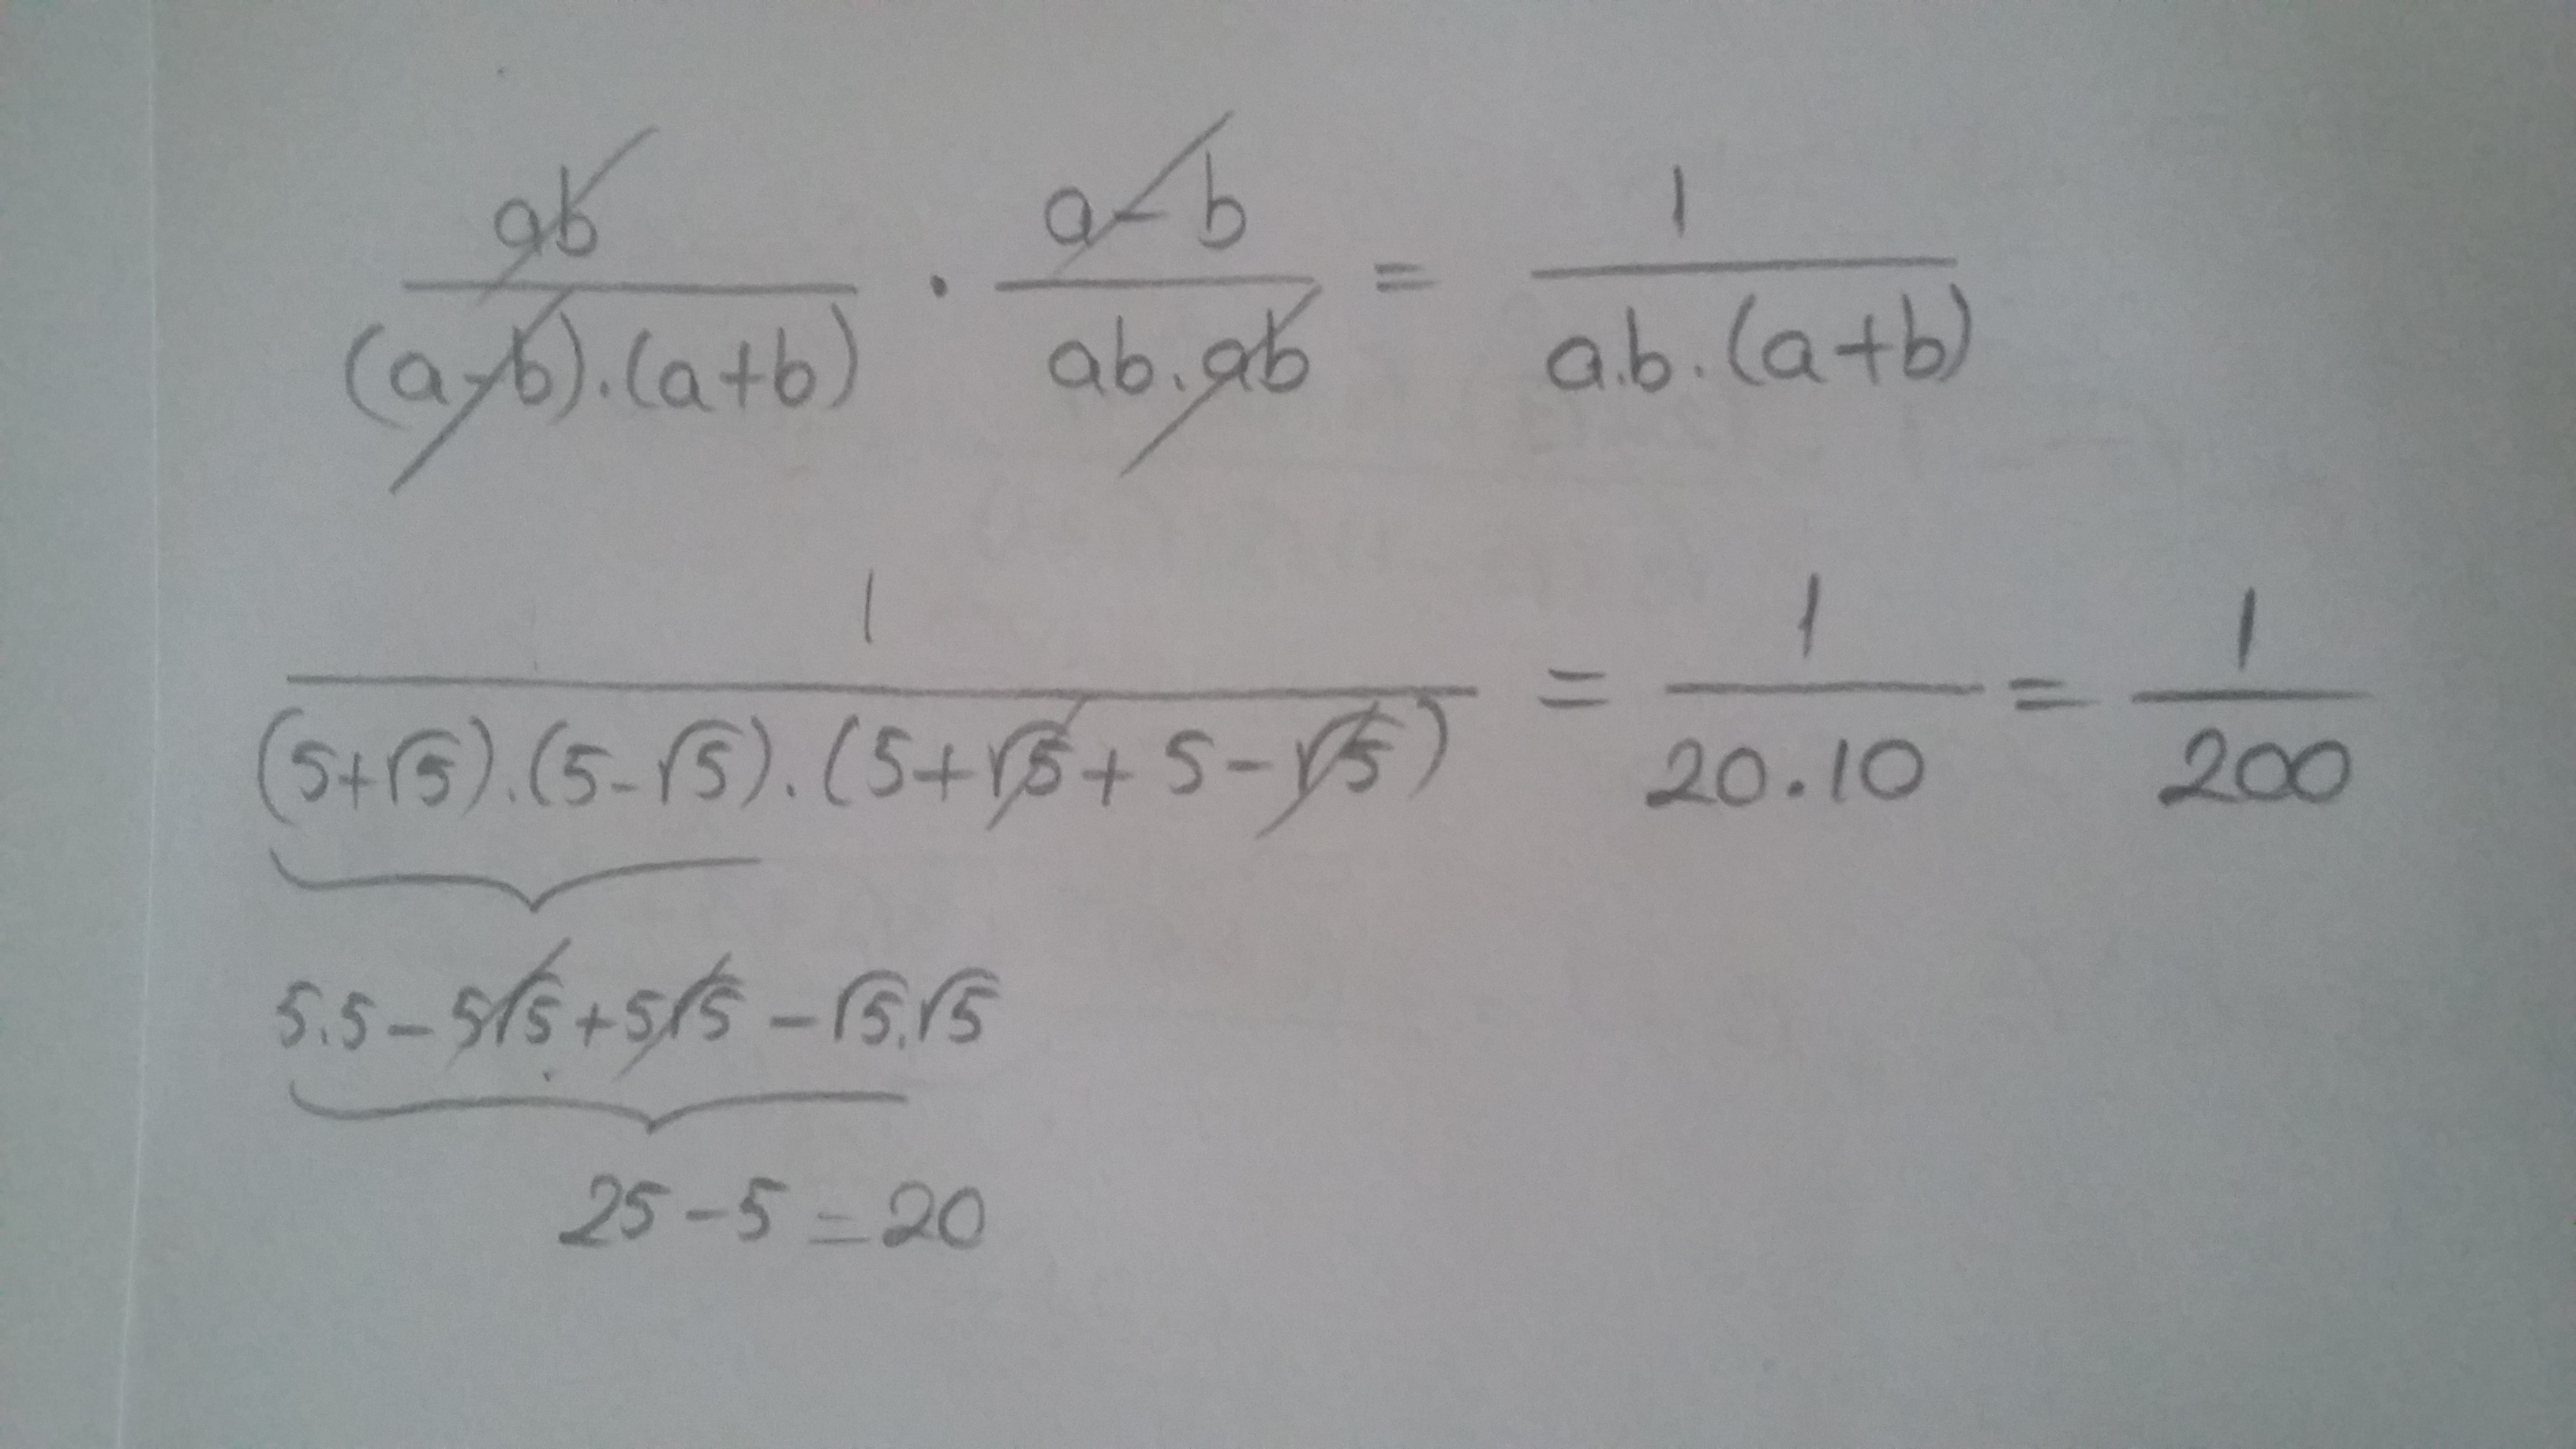 ab/((a-b).(a+b)) . (a-b)/(ab.ab) = 1/(a.b.(a+b))
1/((5+√5).(5-√5).(5+√5+5-√5)) = 1/(20.10) = 1/200
5.5-5√5+5√5-√5.√5
25-5=20